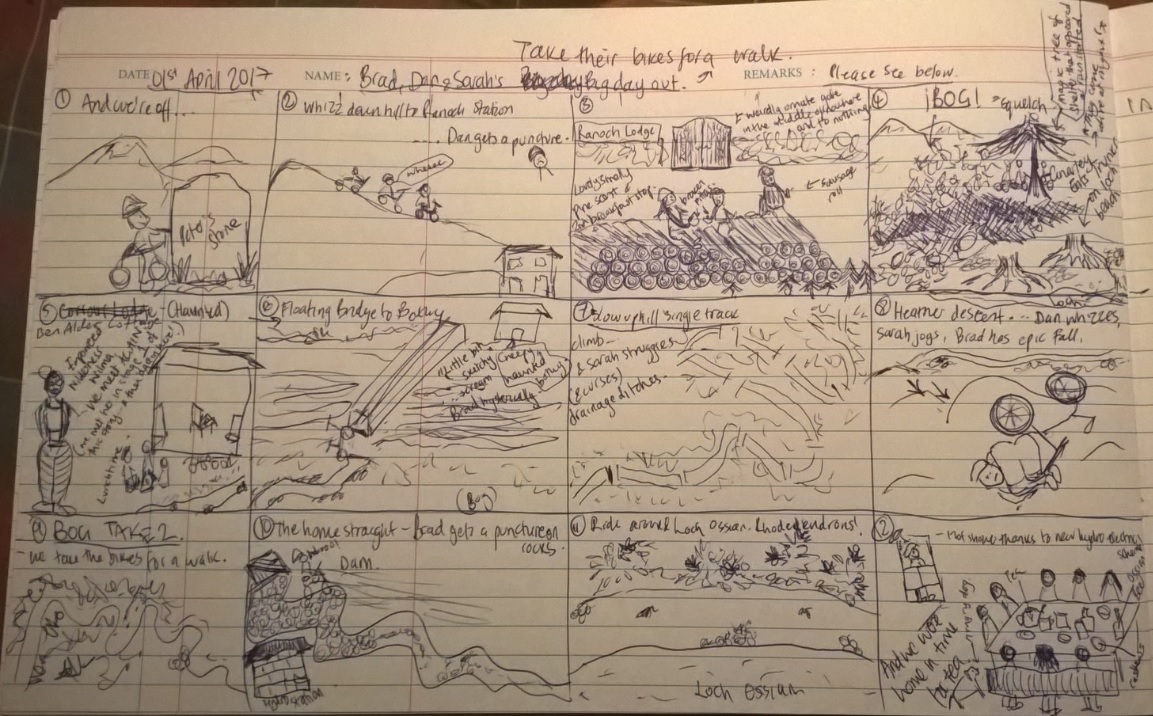 Take their bikes for a walk.
DATE 01st April 2017 NAME: Brad, Dan & Sarah's Big day out. REMARKS: Please see below.
① And we're off...
Pete's Stone
② Whizz down hill to Ranoch Station
.... Dan gets a puncture.
Wheeee
③
Ranoch Lodge
← weirdly ornate gate
in the middle of nowhere
and to nothing
Lovely strong
Pine scent
for breakfast stop.
← sausage
roll
④ ¡BOG! "squelch
magic tree of
shelter that appeared
on
Loch
⑤ (Haunted)
Ben Alder Cottage
we meet
(we met no one in
this story
Lunch time
⑥ Floating Bridge to Bothy
"Little bit
Creepy
haunted
bothy"
scream
Brad hysterically
(Bog)
⑦ Slow uphill single track
climb —
& Sarah struggles
(& curses)
drainage ditches.
⑧ Heather descent... Dan whizzes,
Sarah jogs, Brad has epic fall.
⑨ BOG TAKE 2
- we take the bikes for a walk.
⑩ The home straight - Brad gets a puncture on
rocks.
Dam.
⑪ Ride around Loch Ossian. Rhodedendrons!
Loch Ossian
- Hot shower thanks to new hydro electrics
And we were
home in time
for tea